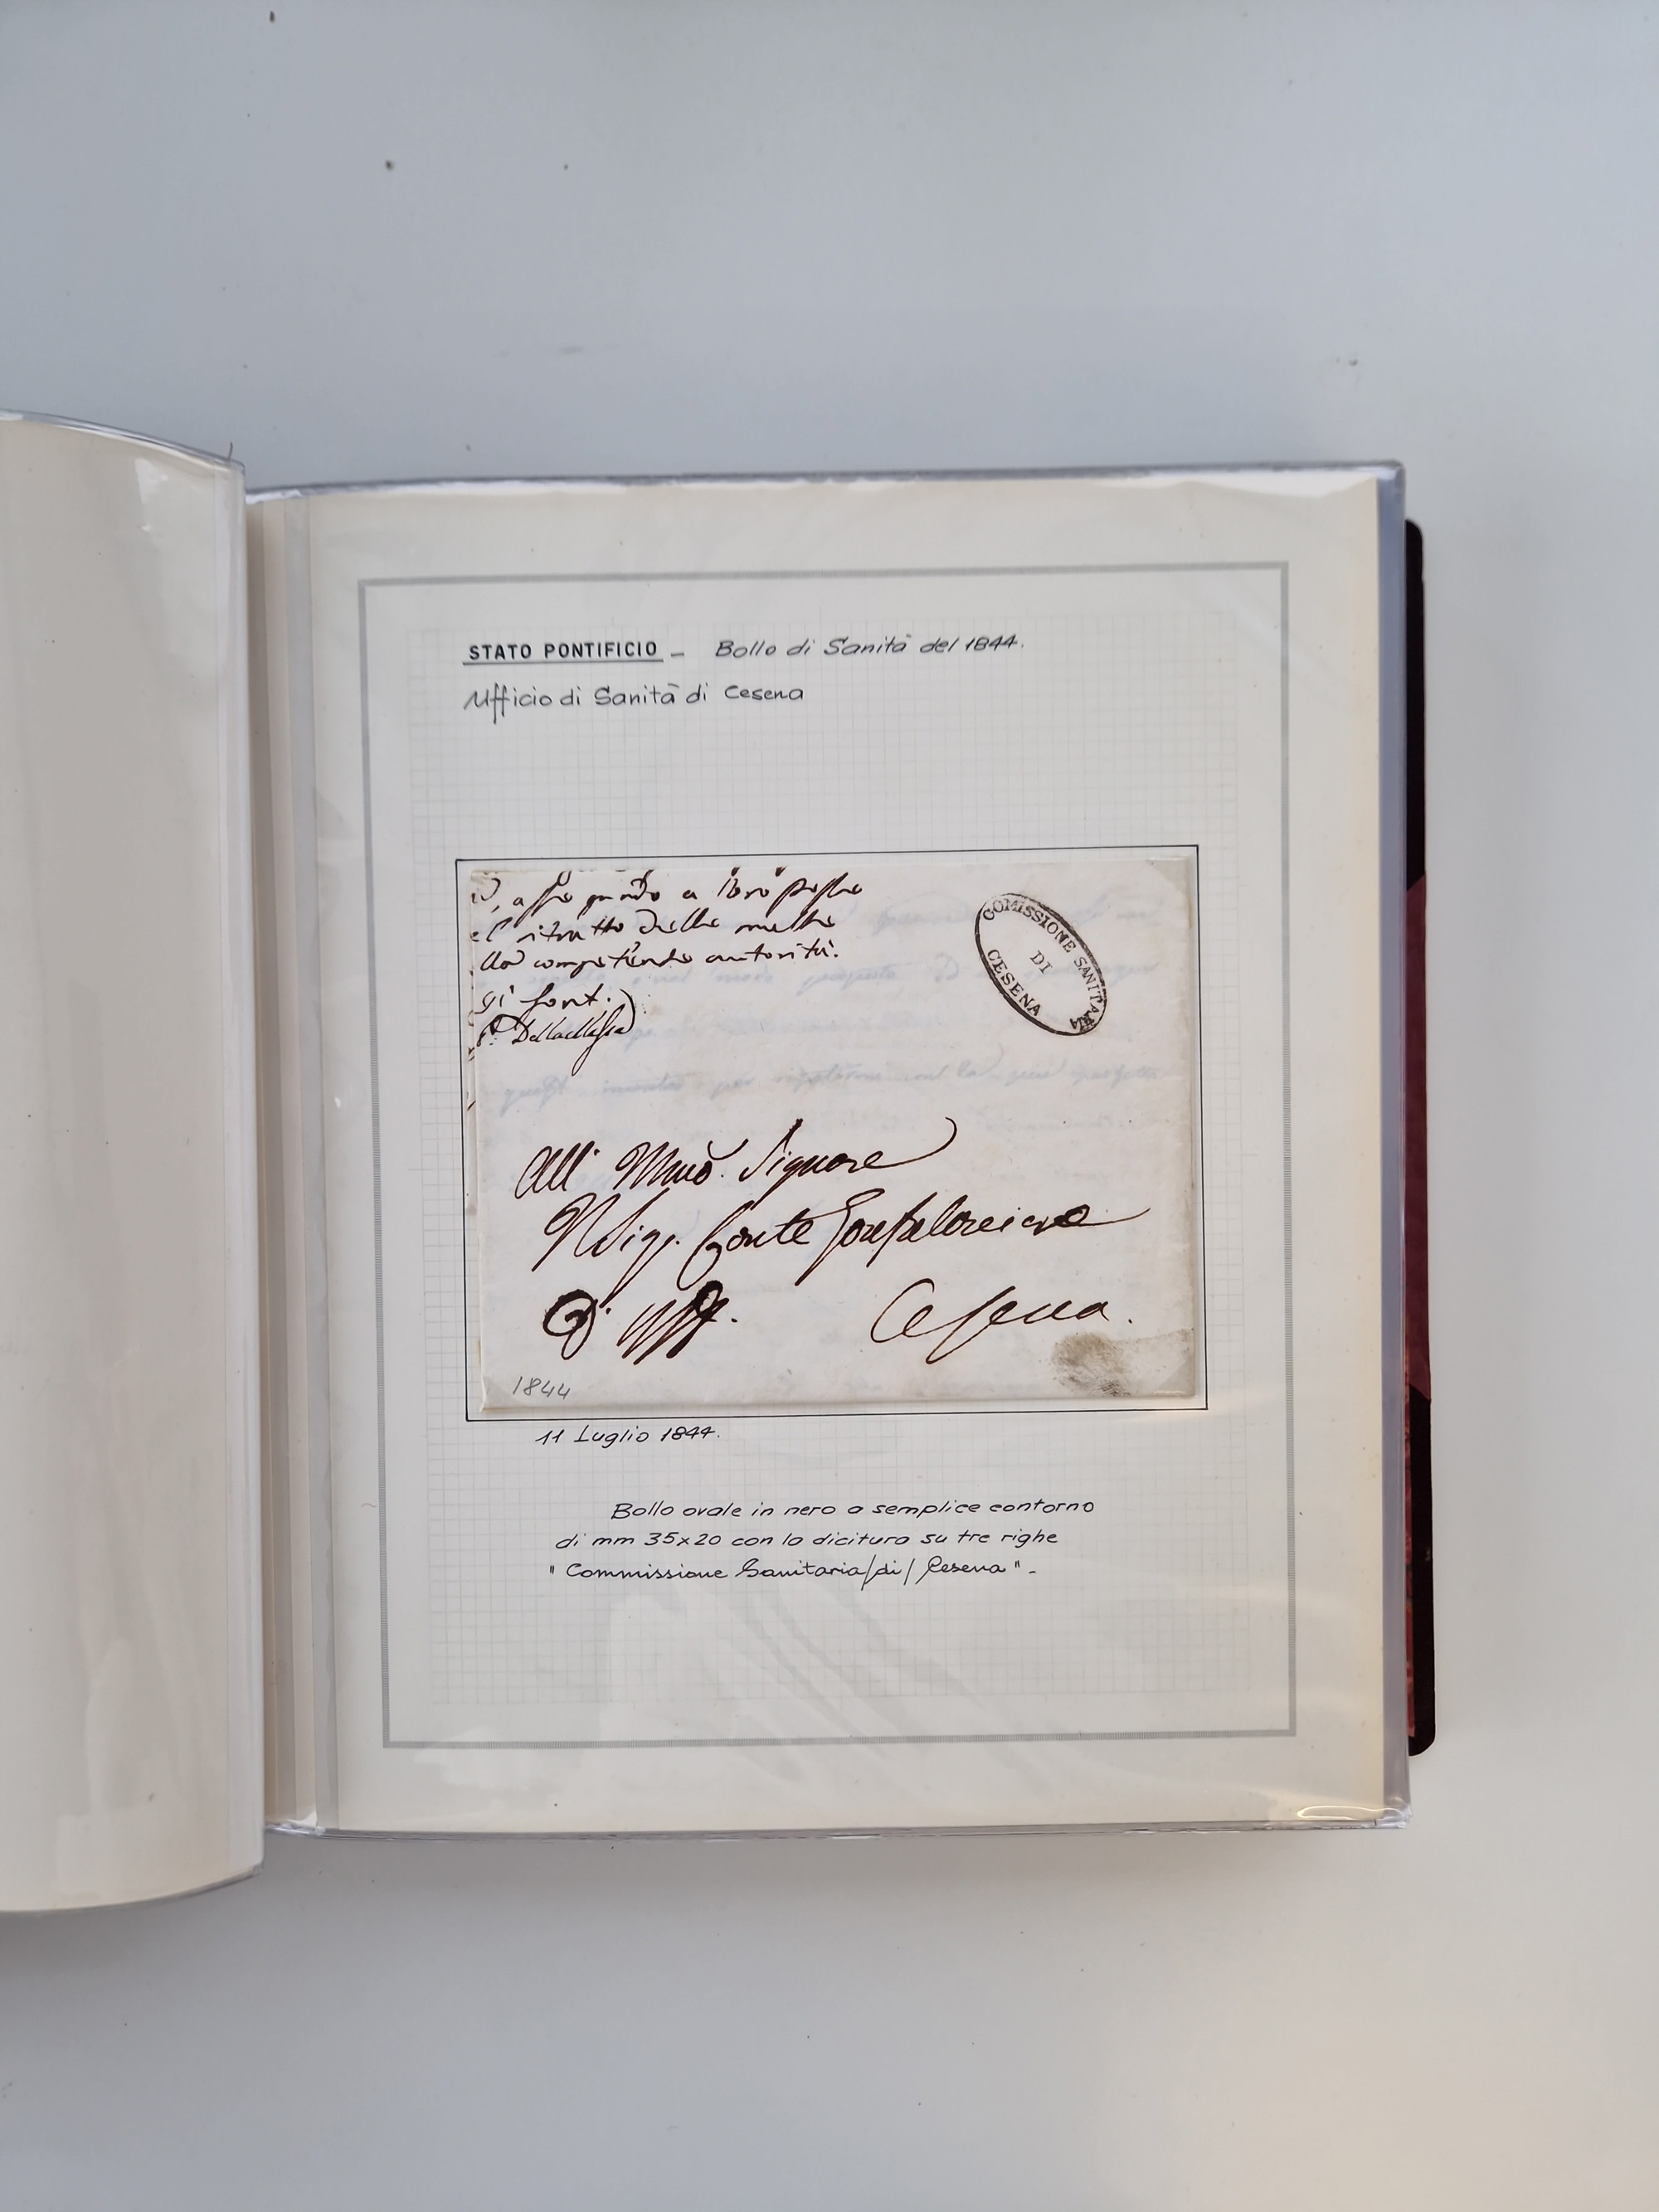 STATO PONTIFICIO - Bollo di Sanità del 1844.
Ufficio di Sanità di Cesena
a loro
el ritratto delle multe
competente autorità.
gi font.
COMISSIONE SANITARIA
DI
CESENA
All' Signore
Il Sig. Conte Gonfaloniere
Di Cesena.
1844
11 Luglio 1844.
Bollo ovale in nero a semplice contorno
di mm 35x20 con la dicitura su tre righe
"Commissione Sanitaria/di/Cesena".-